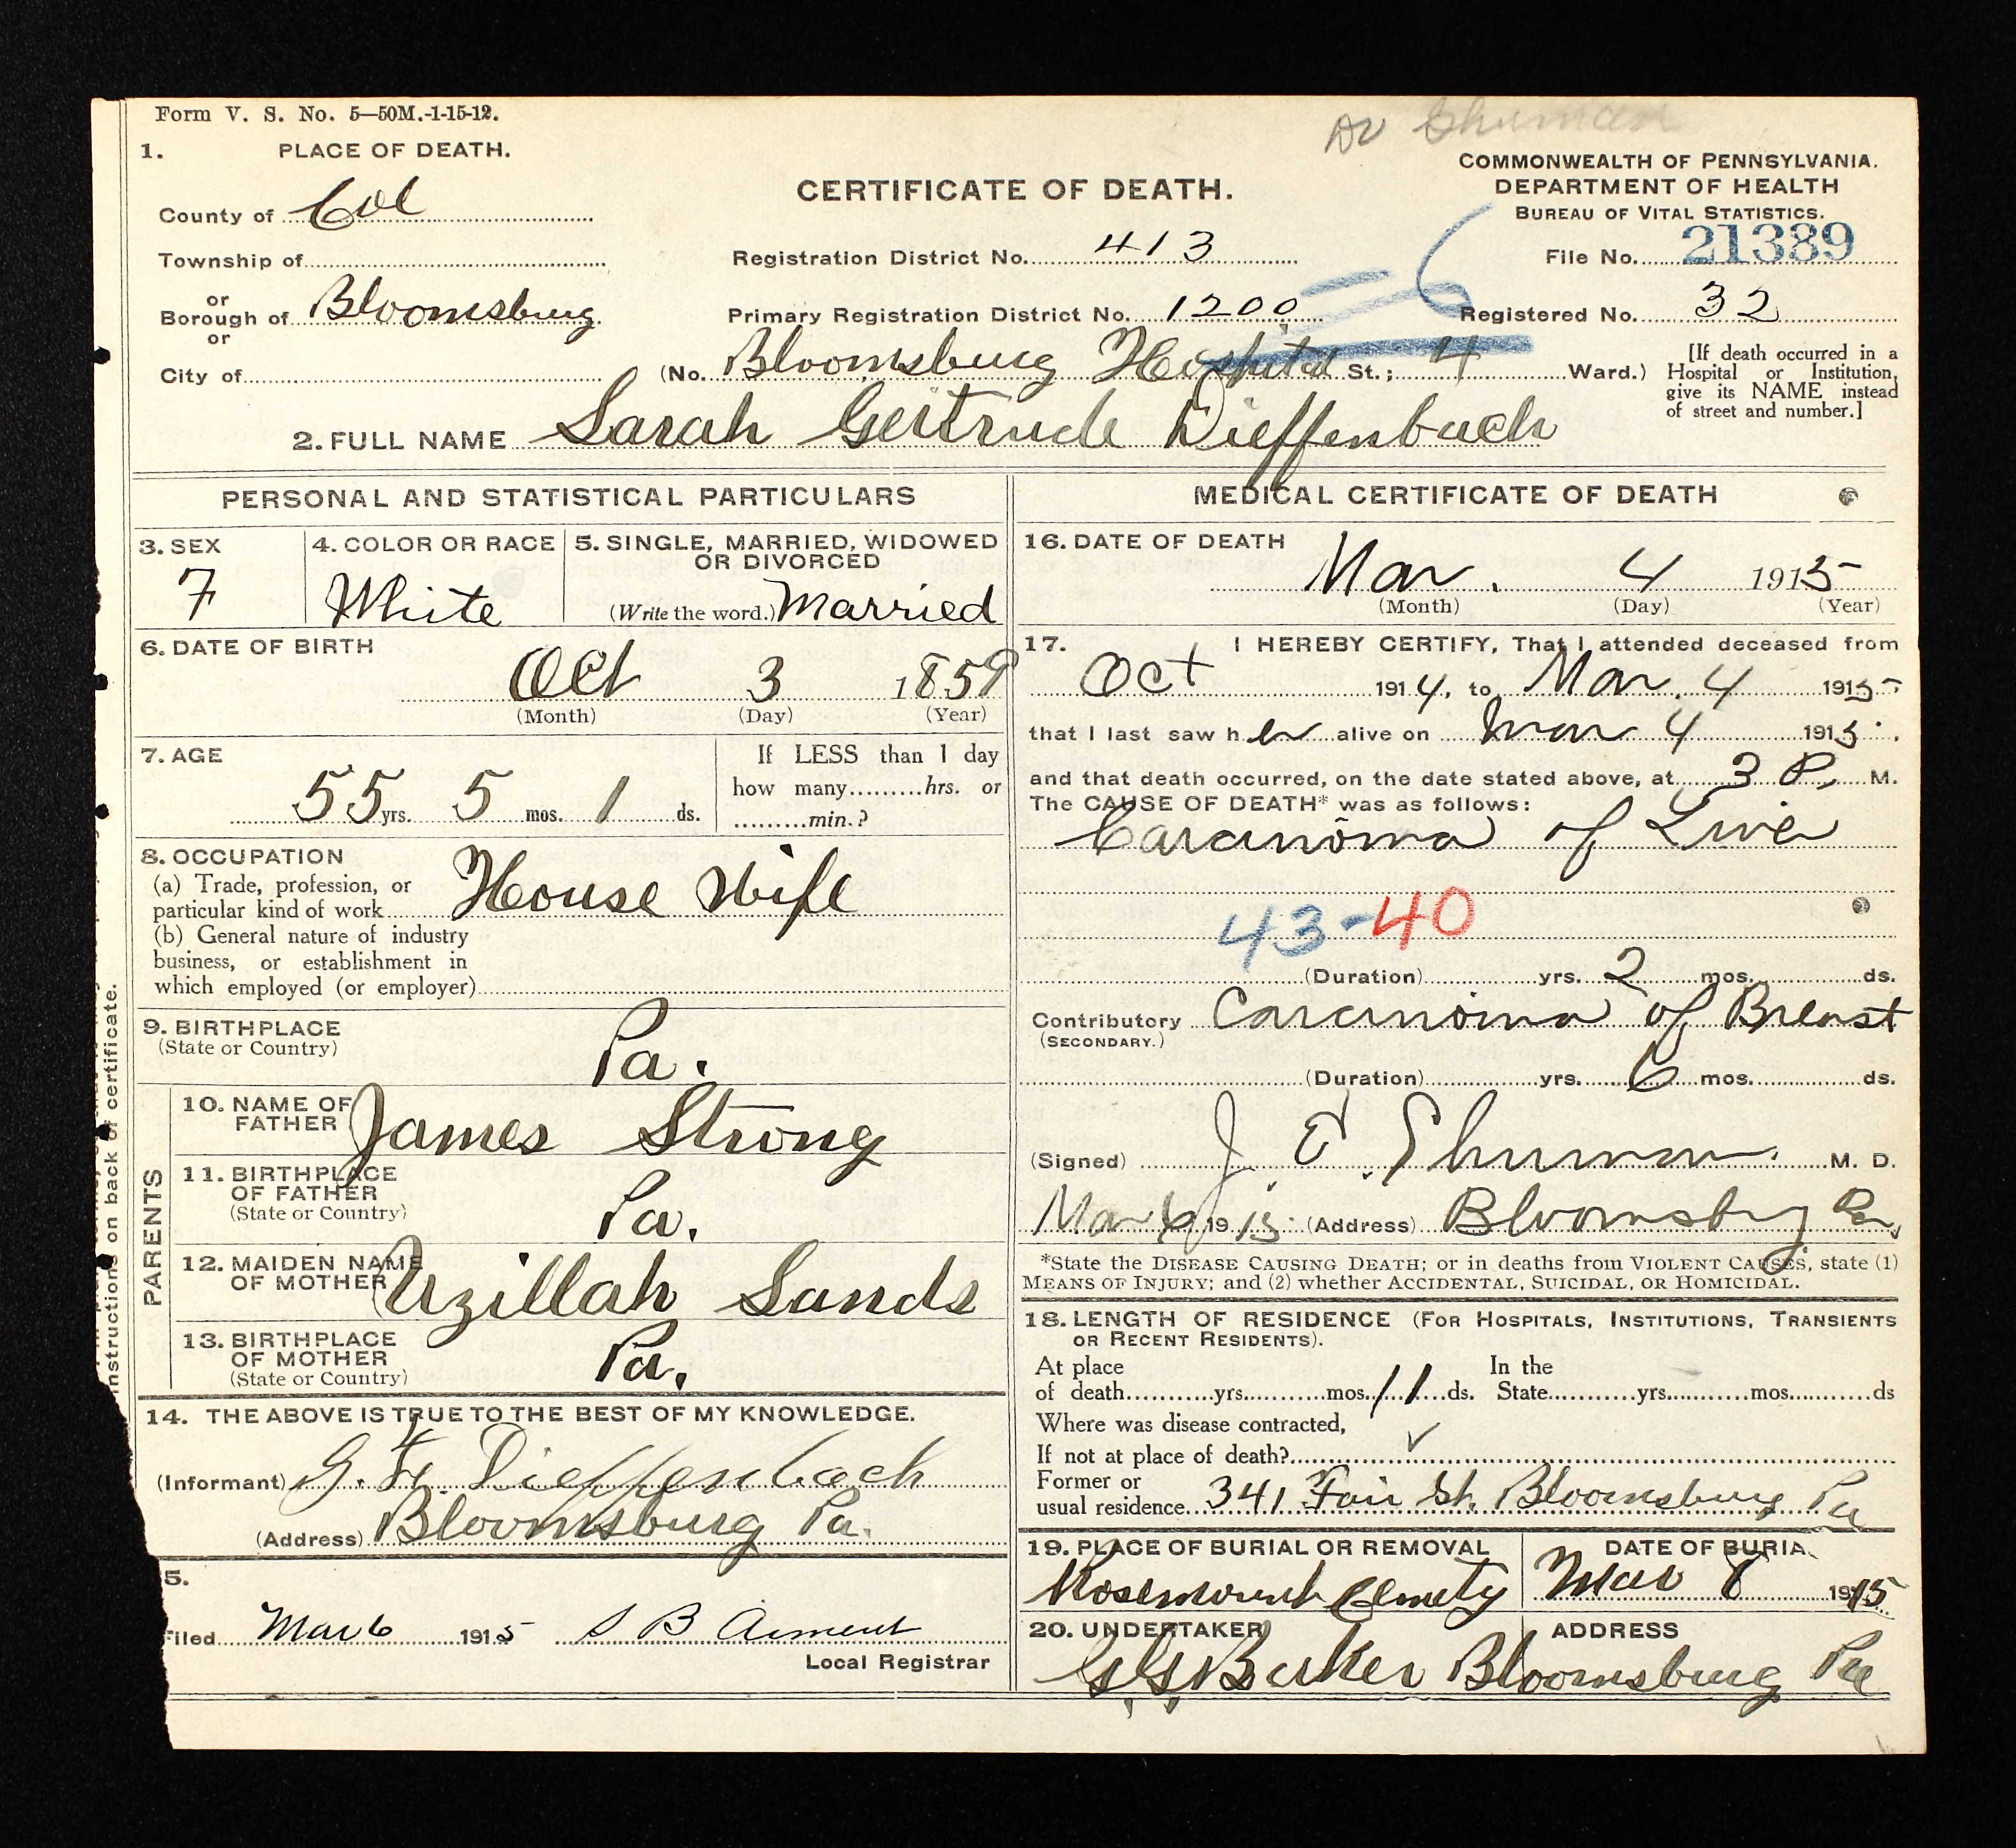 Form V. S. No. 5—50M.-1-15-12.
Dr Shuman
1. PLACE OF DEATH.
County of Col
Township of
or
Borough of Bloomsburg
or
City of
CERTIFICATE OF DEATH.
Registration District No. 413
Primary Registration District No. 1200
(No. Bloomsburg Hospital St.; 4 Ward.)
COMMONWEALTH OF PENNSYLVANIA.
DEPARTMENT OF HEALTH
BUREAU OF VITAL STATISTICS.
File No. 21389
6
Registered No. 32
[If death occurred in a
Hospital or Institution,
give its NAME instead
of street and number.]
2. FULL NAME Sarah Gertrude Dieffenbach
PERSONAL AND STATISTICAL PARTICULARS
3. SEX
F
4. COLOR OR RACE
White
5. SINGLE, MARRIED, WIDOWED
OR DIVORCED
(Write the word.) Married
6. DATE OF BIRTH
Oct 3 1859
(Month) (Day) (Year)
7. AGE
55 yrs. 5 mos. 1 ds.
If LESS than 1 day
how many hrs. or
min.?
8. OCCUPATION
(a) Trade, profession, or
particular kind of work House Wife
(b) General nature of industry
business, or establishment in
which employed (or employer)
9. BIRTHPLACE
(State or Country)
Pa.
PARENTS
10. NAME OF
FATHER James Strong
11. BIRTHPLACE
OF FATHER
(State or Country)
Pa.
12. MAIDEN NAME
OF MOTHER Uzillah Sands
13. BIRTHPLACE
OF MOTHER
(State or Country)
Pa.
14. THE ABOVE IS TRUE TO THE BEST OF MY KNOWLEDGE.
(Informant) G. Dieffenbach
(Address) Bloomsburg Pa.
5.
Filed Mar 6 1915 S B Arment
Local Registrar
instructions on back of certificate.
MEDICAL CERTIFICATE OF DEATH
16. DATE OF DEATH
Mar. 4 1915
(Month) (Day) (Year)
17. I HEREBY CERTIFY, That I attended deceased from
Oct 1914, to Mar. 4 1915
that I last saw her alive on Mar 4 1915.
and that death occurred, on the date stated above, at 3 P. M.
The CAUSE OF DEATH* was as follows:
Carcinoma of Liver
43-40
(Duration) yrs. 2 mos. ds.
Contributory Carcinoma of Breast
(SECONDARY.)
(Duration) yrs. 6 mos. ds.
(Signed) J. E. Shuman. M. D.
Mar 6 1915 (Address) Bloomsburg Pa.
*State the DISEASE CAUSING DEATH; or in deaths from VIOLENT CAUSES, state (1)
MEANS OF INJURY; and (2) whether ACCIDENTAL, SUICIDAL, OR HOMICIDAL.
18. LENGTH OF RESIDENCE (FOR HOSPITALS, INSTITUTIONS, TRANSIENTS
OR RECENT RESIDENTS).
At place In the
of death yrs. mos. 11 ds. State yrs. mos. ds
Where was disease contracted,
If not at place of death?
Former or
usual residence 341 Fair St. Bloomsburg Pa
19. PLACE OF BURIAL OR REMOVAL
Rosemount Cemety
DATE OF BURIA
Mar 8 1915
20. UNDERTAKER
G G Baker
ADDRESS
Bloomsburg Pa